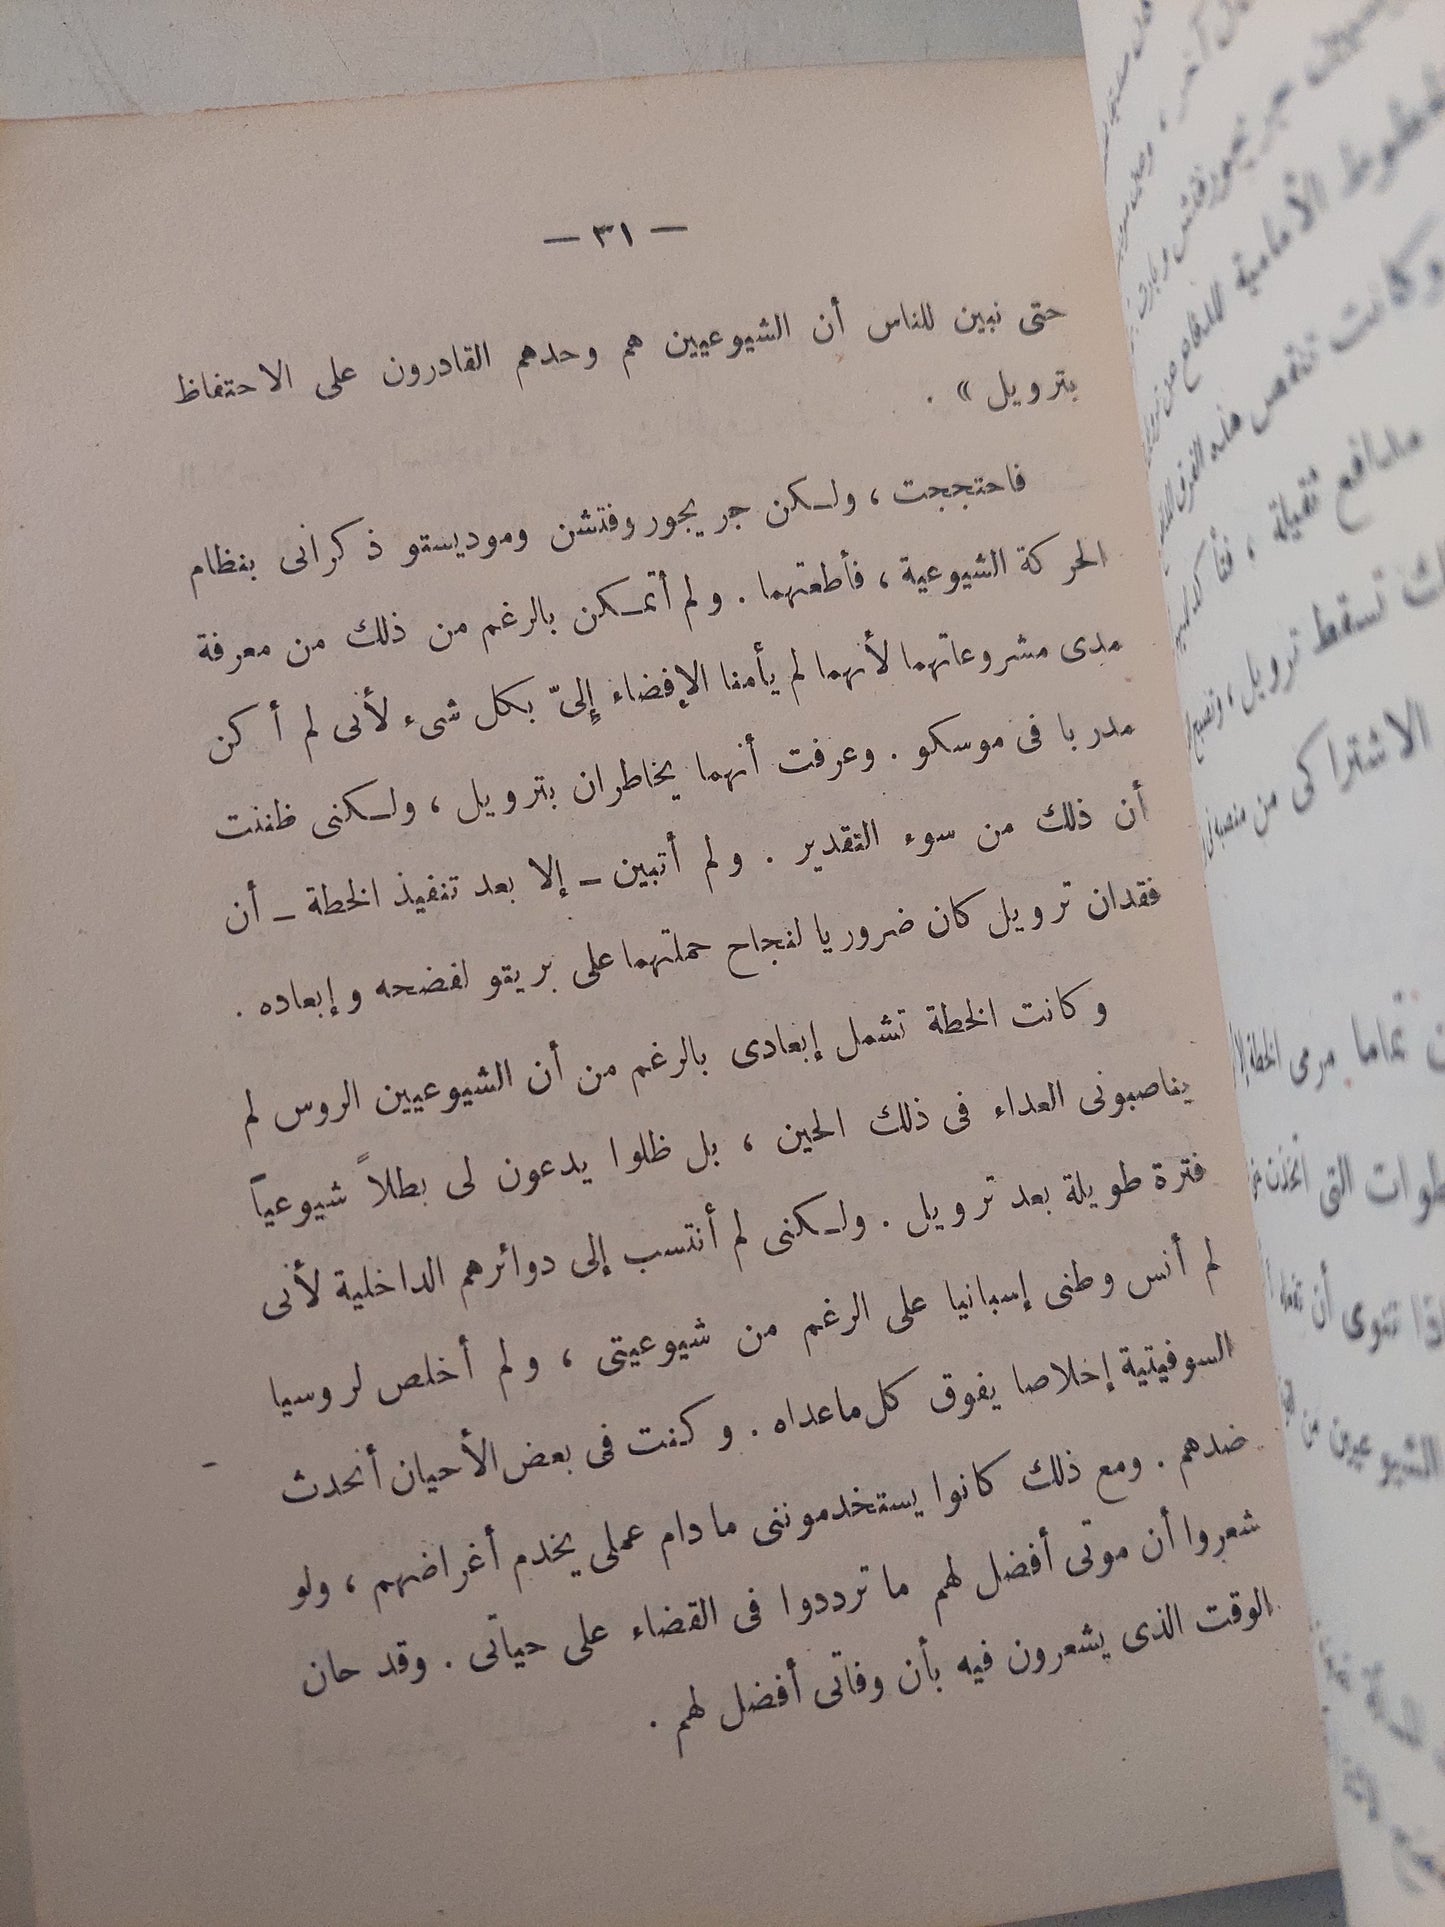 — ٣١ —
حتى نبين للناس أن الشيوعيين هم وحدهم القادرون على الاحتفاظ
بترويل » .
فاحتججت ، ولكن جريجوروفتشن وموديستو ذكرانى بنظام
الحركة الشيوعية ، فأطعتهما . ولم أتمكن بالرغم من ذلك من معرفة
مدى مشروعاتهما لأنهما لم يأمنا الإفضاء إلىّ بكل شىء لأنى لم أكن
مدربا فى موسكو . وعرفت أنهما يخاطران بترويل ، ولكنى ظننت
أن ذلك من سوء التقدير . ولم أتبين – إلا بعد تنفيذ الخطة – أن
فقدان ترويل كان ضروريا لنجاح حملتهما على بريتو لفضحه وإبعاده .
وكانت الخطة تشمل إبعادى بالرغم من أن الشيوعيين الروس لم
يناصبونى العداء فى ذلك الحين ، بل ظلوا يدعون لى بطلاً شيوعياً
فترة طويلة بعد ترويل . ولكنى لم أنتسب إلى دوائرهم الداخلية لأنى
لم أنس وطنى إسبانيا على الرغم من شيوعيتى ، ولم أخلص لروسيا
السوفيتية إخلاصا يفوق كل ماعداه . وكنت فى بعض الأحيان أتحدث
ضدهم . ومع ذلك كانوا يستخدموننى مادام عملى يخدم أغراضهم ، ولو
شعروا أن موتى أفضل لهم ما ترددوا فى القضاء على حياتى . وقد حان
الوقت الذى يشعرون فيه بأن وفاتى أفضل لهم .
الأمامية للدفاع عن
وكانت تنقص هذه الفرق
مدافع ثقيلة ،
تسقط ترويل ،
الاشتراكى من
تماما مرمى الخطة
التى
تنوى أن
الشيوعيين من